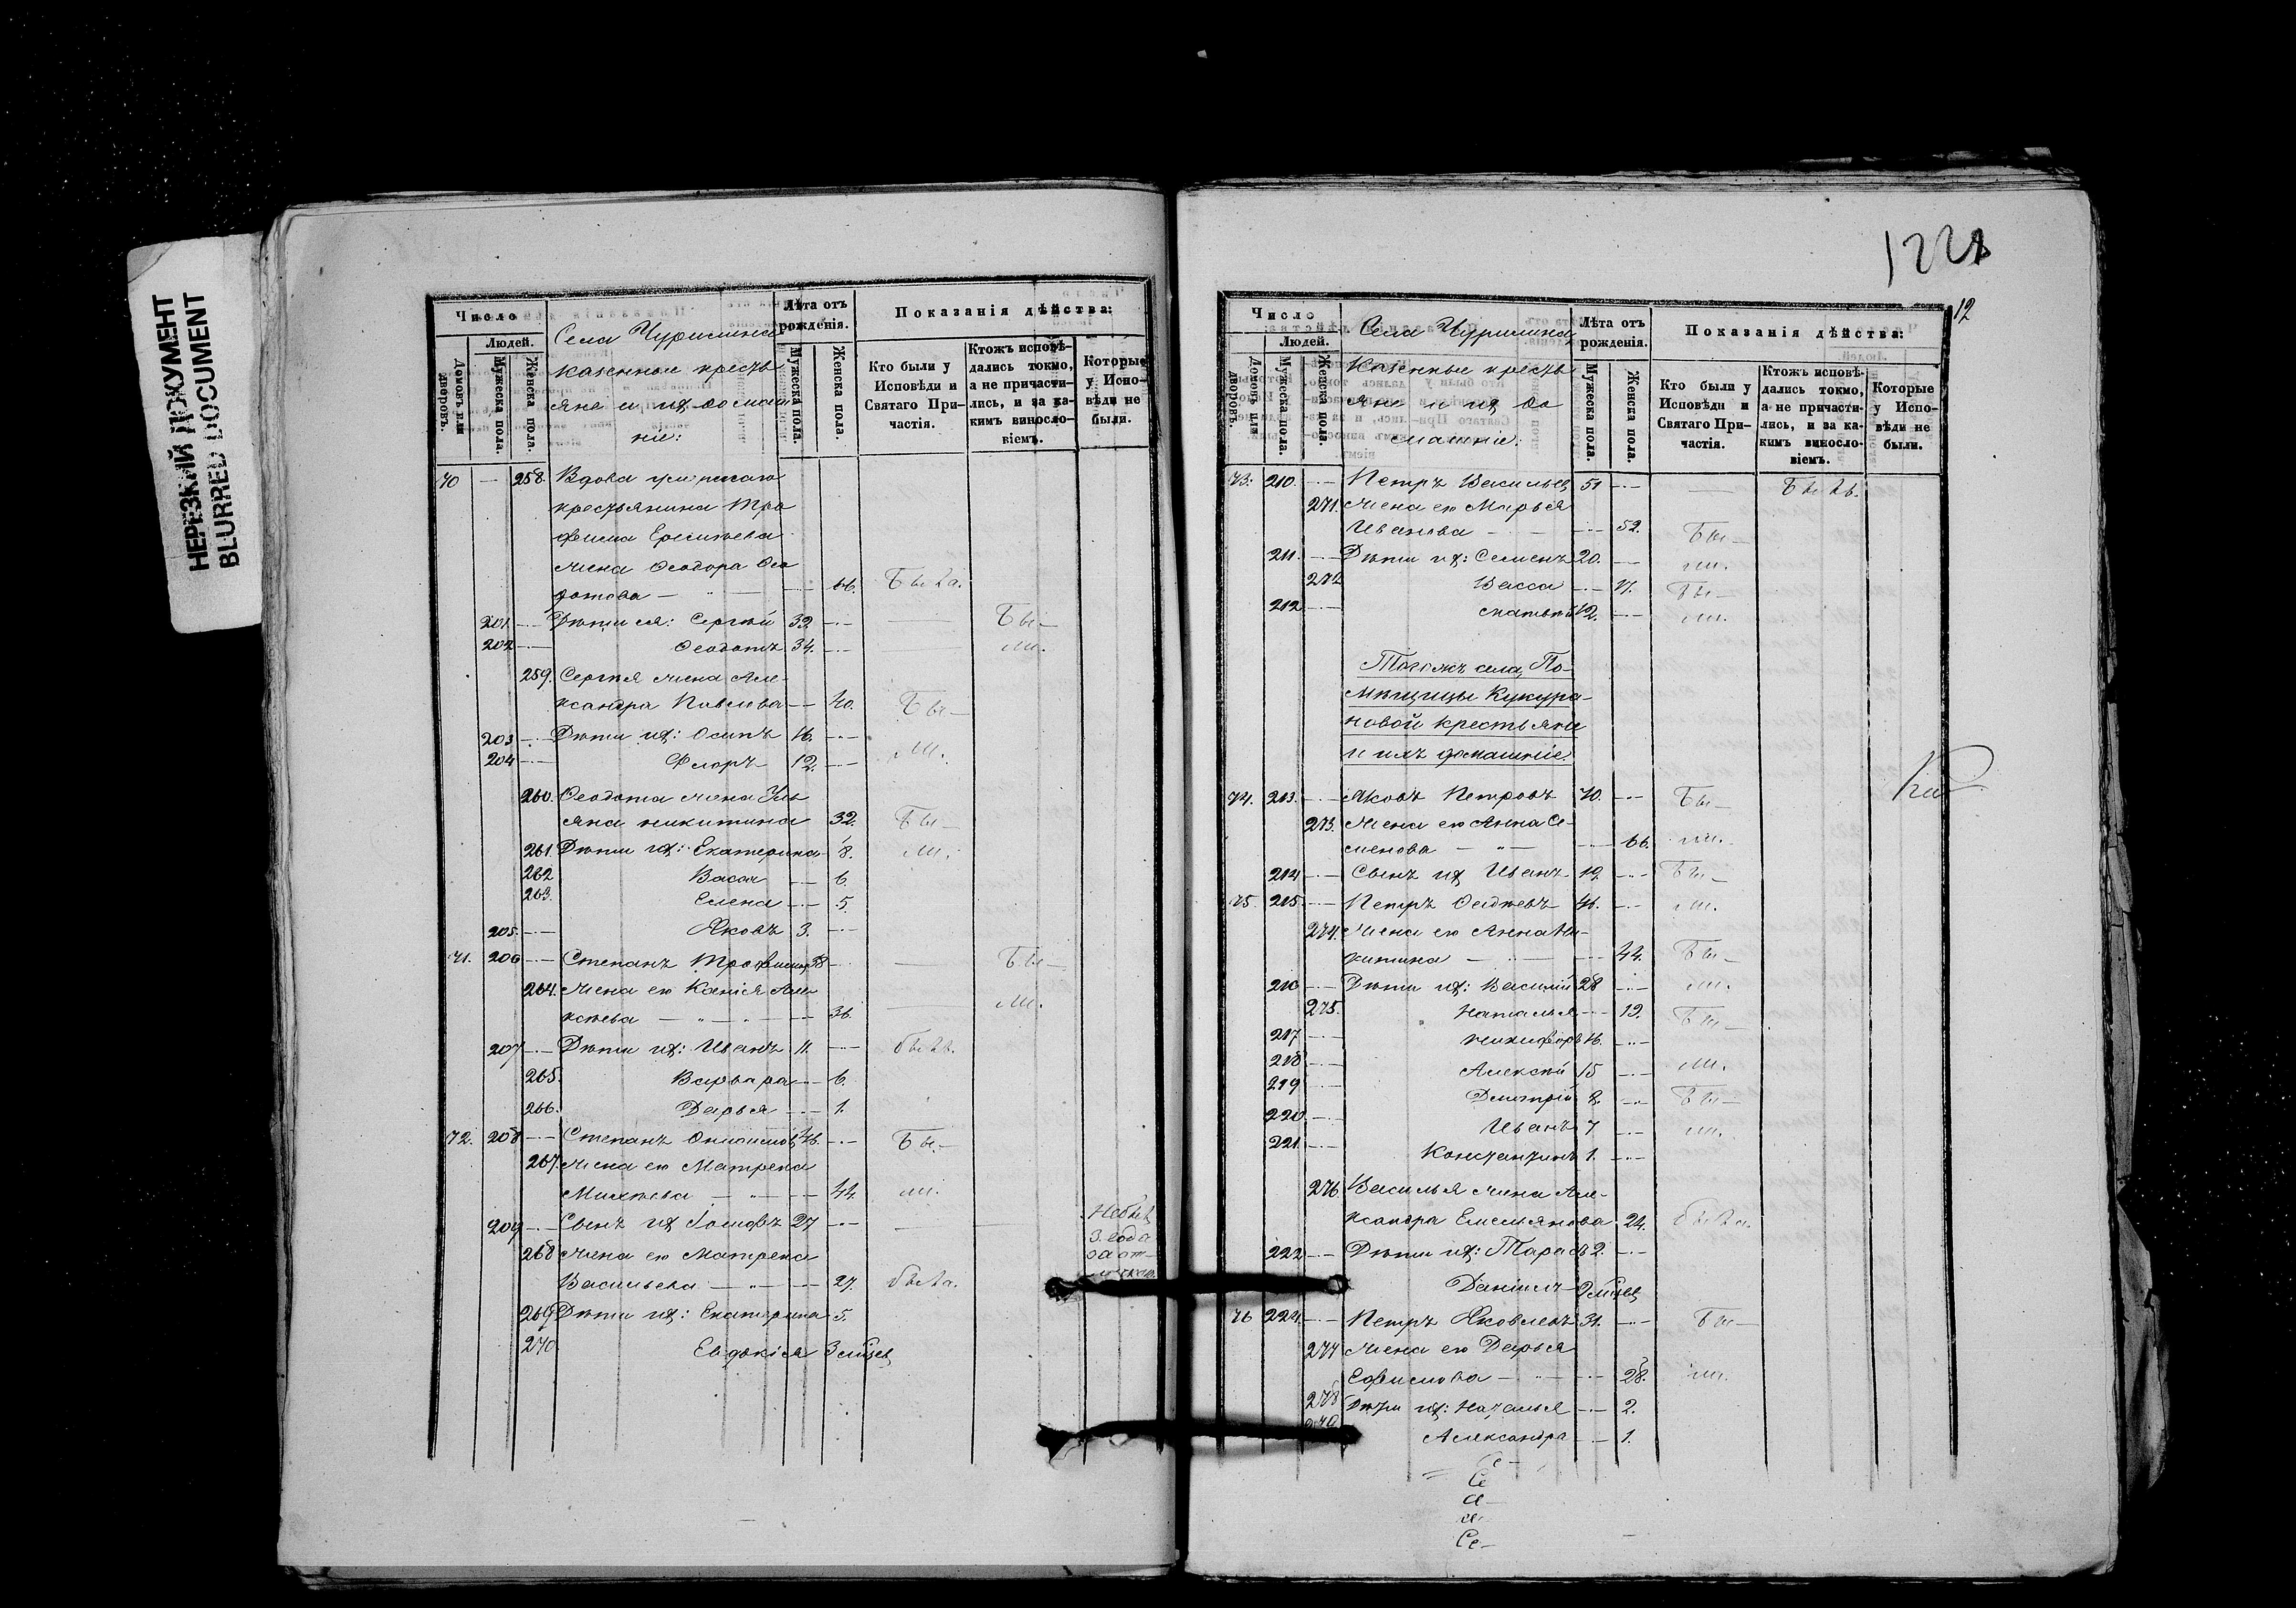 НЕРЕЗКИЙ ДОКУМЕНТ
BLURRED DOCUMENT
Число
Людей.
Домовъ или дворовъ.
Мужеска пола.
Женска пола.
Села Чурилина
казенные кресть
яне и их домаш
ніе:
Лѣта отъ рожденія.
Мужеска пола.
Женска пола.
Показанія дѣйства:
Кто были у Исповѣди и Святаго При-частія.
Ктожъ исповѣ-дались токмо, а не причасти-лись, и за ка-кимъ винosло-віемъ.
Которые у Испо-вѣди не были.
70 — 258. Вдова
крестьянина Тро
фима
жена Ѳеодора Ѳео
дотова — 66. Была.
201. Дѣти ея: Сергѣй 39. Бы—
202 Ѳеодотъ 34. ли.
259. Сергѣя жена Але-
ксандра Павлова — 40. Бы—
203 Дѣти их: Осипъ 16. ли.
204 Флоръ 12.
260. Ѳеодота жена Улья
яна никитина 32. Бы—
261. Дѣти их: Екатерина 8. ли.
262 Васса 6.
263. Елена 5.
205. Яковъ 3.
71. 206 Степанъ Трофимовъ 38 Бы—
264. жена ею Ксенія Але-
ксѣева — 36. ли.
207 Дѣти их: Иванъ 11. былъ.
265. Варвара 6.
266. Дарья 1.
72. 208 Степанъ 46. Бы—
267. жена ею Матрена
Михѣева — 44. ли.
209 Сынъ их 27 Небылъ
3. года
за от-
268 жена ею Матрена
Васильева — 27. была.
269 Дѣти их: Екатерина 5.
270 Евдокія 3 мѣсяц
122
12
Число
Людей.
Домовъ или дворовъ.
Мужеска пола.
Женска пола.
Села Чурилина
Казенные кресть
яне и их до
машніе:
Лѣта отъ рожденія.
Мужеска пола.
Женска пола.
Показанія дѣйства:
Кто были у Исповѣди и Святаго При-частія.
Ктожъ исповѣ-дались токмо, а не причасти-лись, и за ка-кимъ виносло-віемъ.
Которые у Испо-вѣди не были.
73. 210. Петръ Васильев 51 — Былъ.
271. жена ею Марья
Иванова — 52. Бы—
211. Дѣти их: Семенъ 20. ли.
272 Васса 17. Бы—
212 матвѣй 12. ли.
Тогожъ села, По-
мѣщицы Кукура-
новой крестьяне
и ихъ домашніе.
74. 213. Яковъ Петровъ 70. Бы—
273. жена ею Анна Се-
менова — 66. ли.
214 Сынъ их Иванъ 19. Бы—
75. 215. Петръ 46. ли.
274. жена ею Анна Ни-
китина — 44. Бы—
216 Дѣти их: Василий 28 ли.
275. Наталья 19. Бы—
217 никифоръ 16.
218 Алексѣй 15 ли.
219 Дмитрій 8. Бы—
220 Иванъ 7 ли.
221. Константинъ 1.
276. Василья жена Але-
ксандра Емельянова 24. была.
222 Дѣти их: Тарасъ 2.
Даніилъ 2 мѣсяц
76 224. Петръ Яковлевъ 31. Бы—
277 жена ею Дарья
Ефимова — 28. ли.
278 Дѣти их: Наталья 2.
279 Александра 1.